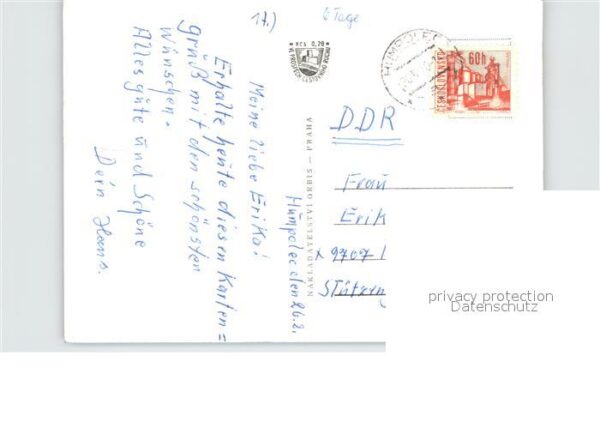 17.)
6 Tage
KčS 0,20
HUMPOLEC
60h
ČESKOSLOVENSKO
Humpolec den 26.2.
Meine liebe Erika!
Erhalte heute diesen Karten=
grüß mit den schönsten
Wünschen.
Alles gute und Schöne
Dein Hans.
NAKLADATELSTVÍ ORBIS — PRAHA
DDR
Frau
Erik
x 9707 /
Stützen
privacy protection
Datenschutz